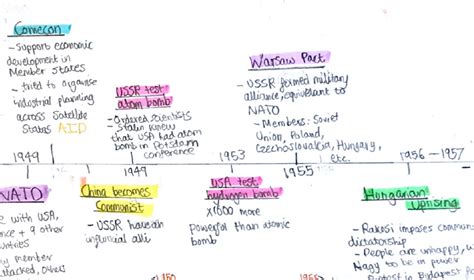 Comecon
- Support economic
development in
Member States
- tried to organise
industrial planning
across Satellite
States AID
USSR test
atom bomb
- Ordered scientists
- Stalin knew
that USA had atom
bomb in Potsdam
conference
Warsaw Pact
- USSR formed military
alliance, equivalent to
NATO
- Members: Soviet
Union, Poland,
Czechoslovakia, Hungary,
etc.
1949
1949
1953
1955
1956 - 1957
NATO
with USA,
+ 9 other
ntries
y member
attacked
China becomes
Communist
- USSR have an
influncial alli
USA test
hydrogen bomb
x1000 more
powerful than atomic
bomb
Hungarian
Uprising
- Rakosi imposes commun
dictatorship
- People are unhappy, w
Nagy to be in power